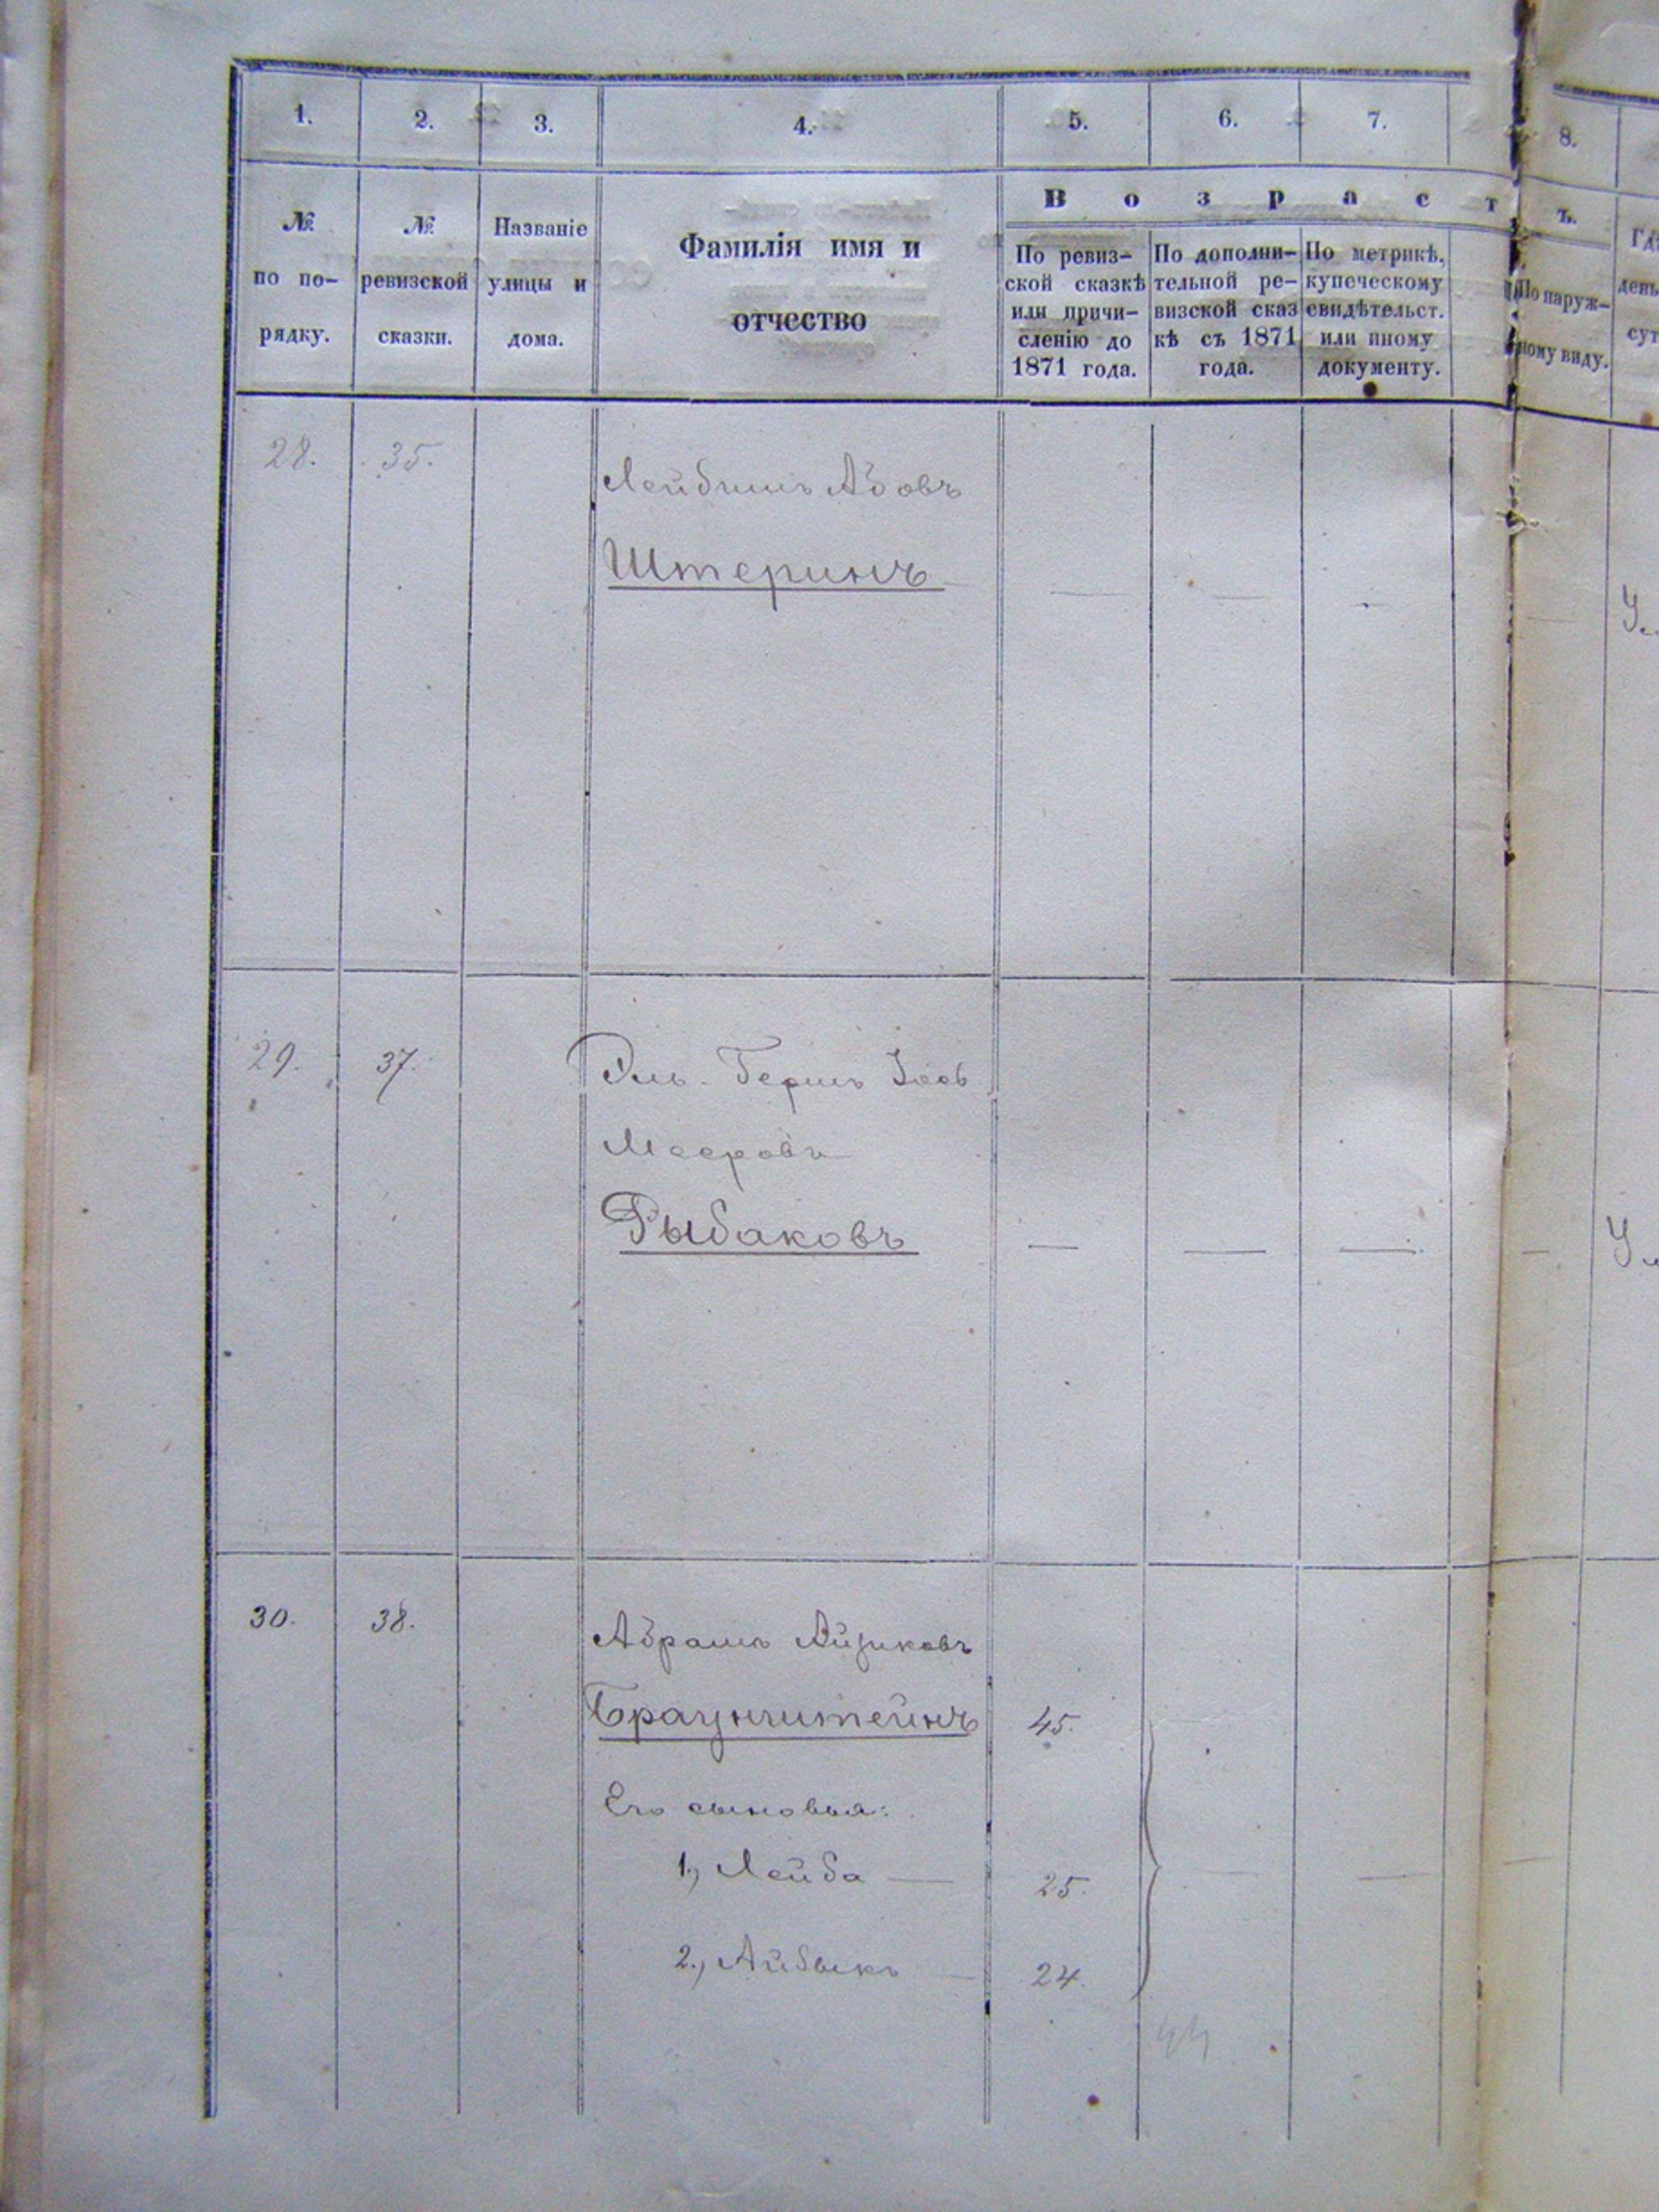 1. 2. 3. 4. 5. 6. 7. 8.
№ по по-рядку.
№ ревизской сказки.
Названіе улицы и дома.
Фамилія имя и
отчество
Возрастъ.
По ревиз-
ской сказкѣ
или причи-
сленію до
1871 года.
По дополни-
тельной ре-
визской сказ
кѣ съ 1871
года.
По метрикѣ,
купеческому
свидѣтельст.
или иному
документу.
По наруж-
ному виду.
28. 35. Лейбишъ Абовъ
Штеринъ
29. 37. Эль-Гершъ
Мееровъ
Рыбаковъ
30. 38. Абрамъ Айзиковъ
Браунштейнъ 45.
Его сыновья:
1, Лейба 25.
2, 24.